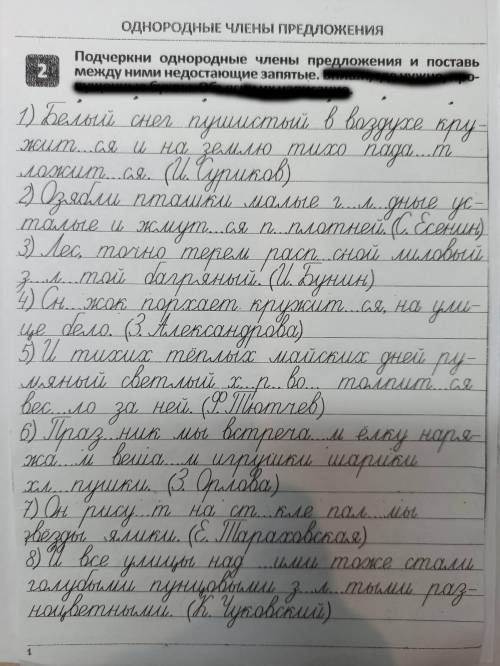 ОДНОРОДНЫЕ ЧЛЕНЫ ПРЕДЛОЖЕНИЯ
2 Подчеркни однородные члены предложения и поставь
между ними недостающие запятые.
1) Белый снег пушистый в воздухе кру-
жит...ся и на землю тихо пада...т
ложит...ся. (И. Суриков)
2) Озябли пташки малые г...л...дные ус-
талые и жмут...ся п...плотней. (С. Есенин)
3) Лес, точно терем расп...сной лиловый
з...л...той багряный. (И. Бунин)
4) Сн...жок порхает кружит...ся, на ули-
це бело. (З. Александрова)
5) И тихих тёплых майских дней ру-
мяный светлый х...р...во... толпит...ся
вес...ло за ней. (Ф. Тютчев)
6) Праз...ник мы встреча...м ёлку наря-
жа...м веша...м игрушки шарики
хл...пушки. (З. Орлова)
7) Он рису...т на ст...кле пал...мы
звёзды ялики. (Е. Тараховская)
8) И все улицы над...ими тоже стали
голубыми пунцовыми з...л...тыми раз-
ноцветными. (К. Чуковский)
1